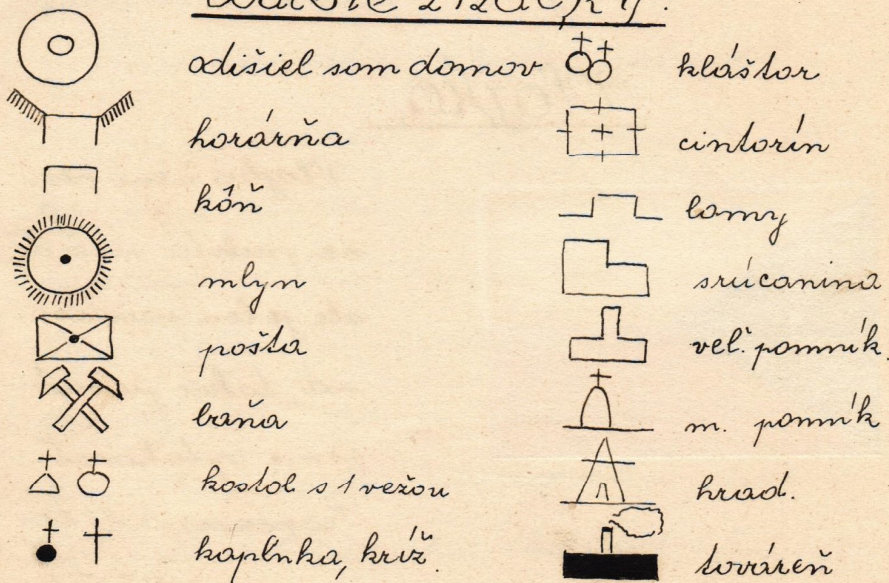 Ďalšie značky.
odišiel som domov
horárňa
kôň
mlyn
pošta
baňa
kostol s 1 vežou
kaplnka, kríž.
kláštor
cintorín
lomy
srúcanina
veľ. pomník.
m. pomník
hrad.
továreň